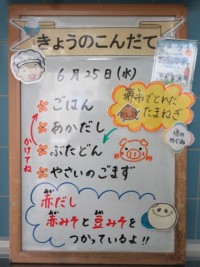 きょうのこんだて
6月25日(水)
ごはん
あかだし
ぶたどん
やさいのごまず
かけてね
堺市でとれた
たまねぎ
堺のめぐみ
赤だし
赤みそと豆みそを
つかっているよ!!